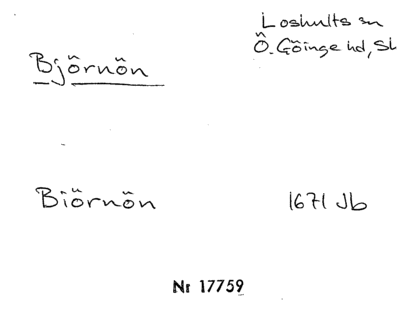 Loshults sn
Björnön
Ö. Göinge hd, Sk
Biörnön
1671 Jb
Nr 17759